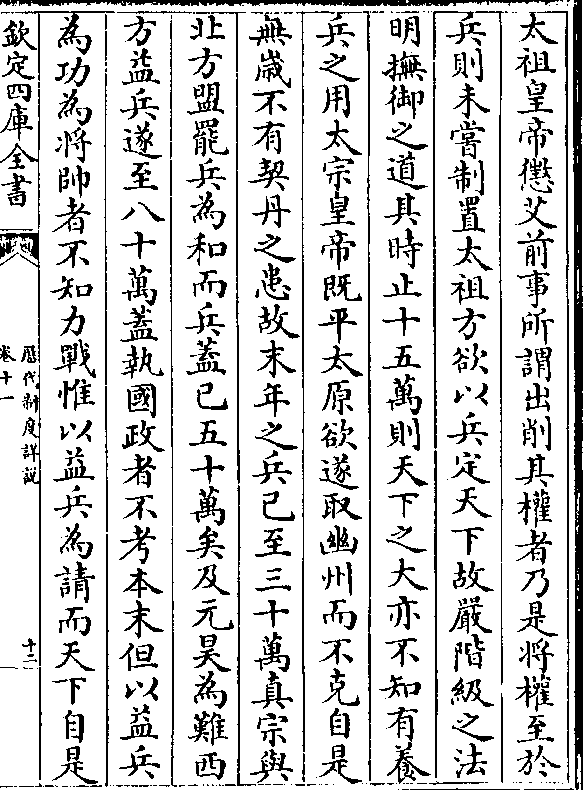 太祖皇帝懲艾前事所謂出削其權者乃是將權至於
兵則未嘗制置太祖方欲以兵定天下故嚴階級之法
明撫御之道其時止十五萬則天下之大亦不知有養
兵之用太宗皇帝既平太原欲遂取幽州而不克自是
無歲不有契丹之患故末年之兵已至三十萬真宗與
北方盟罷兵為和而兵蓋已五十萬矣及元昊為難西
方益兵遂至八十萬蓋執國政者不考本末但以益兵
為功為將帥者不知力戰惟以益兵為請而天下自是
欽定四庫全書
歷代制度詳説
卷十一
十二